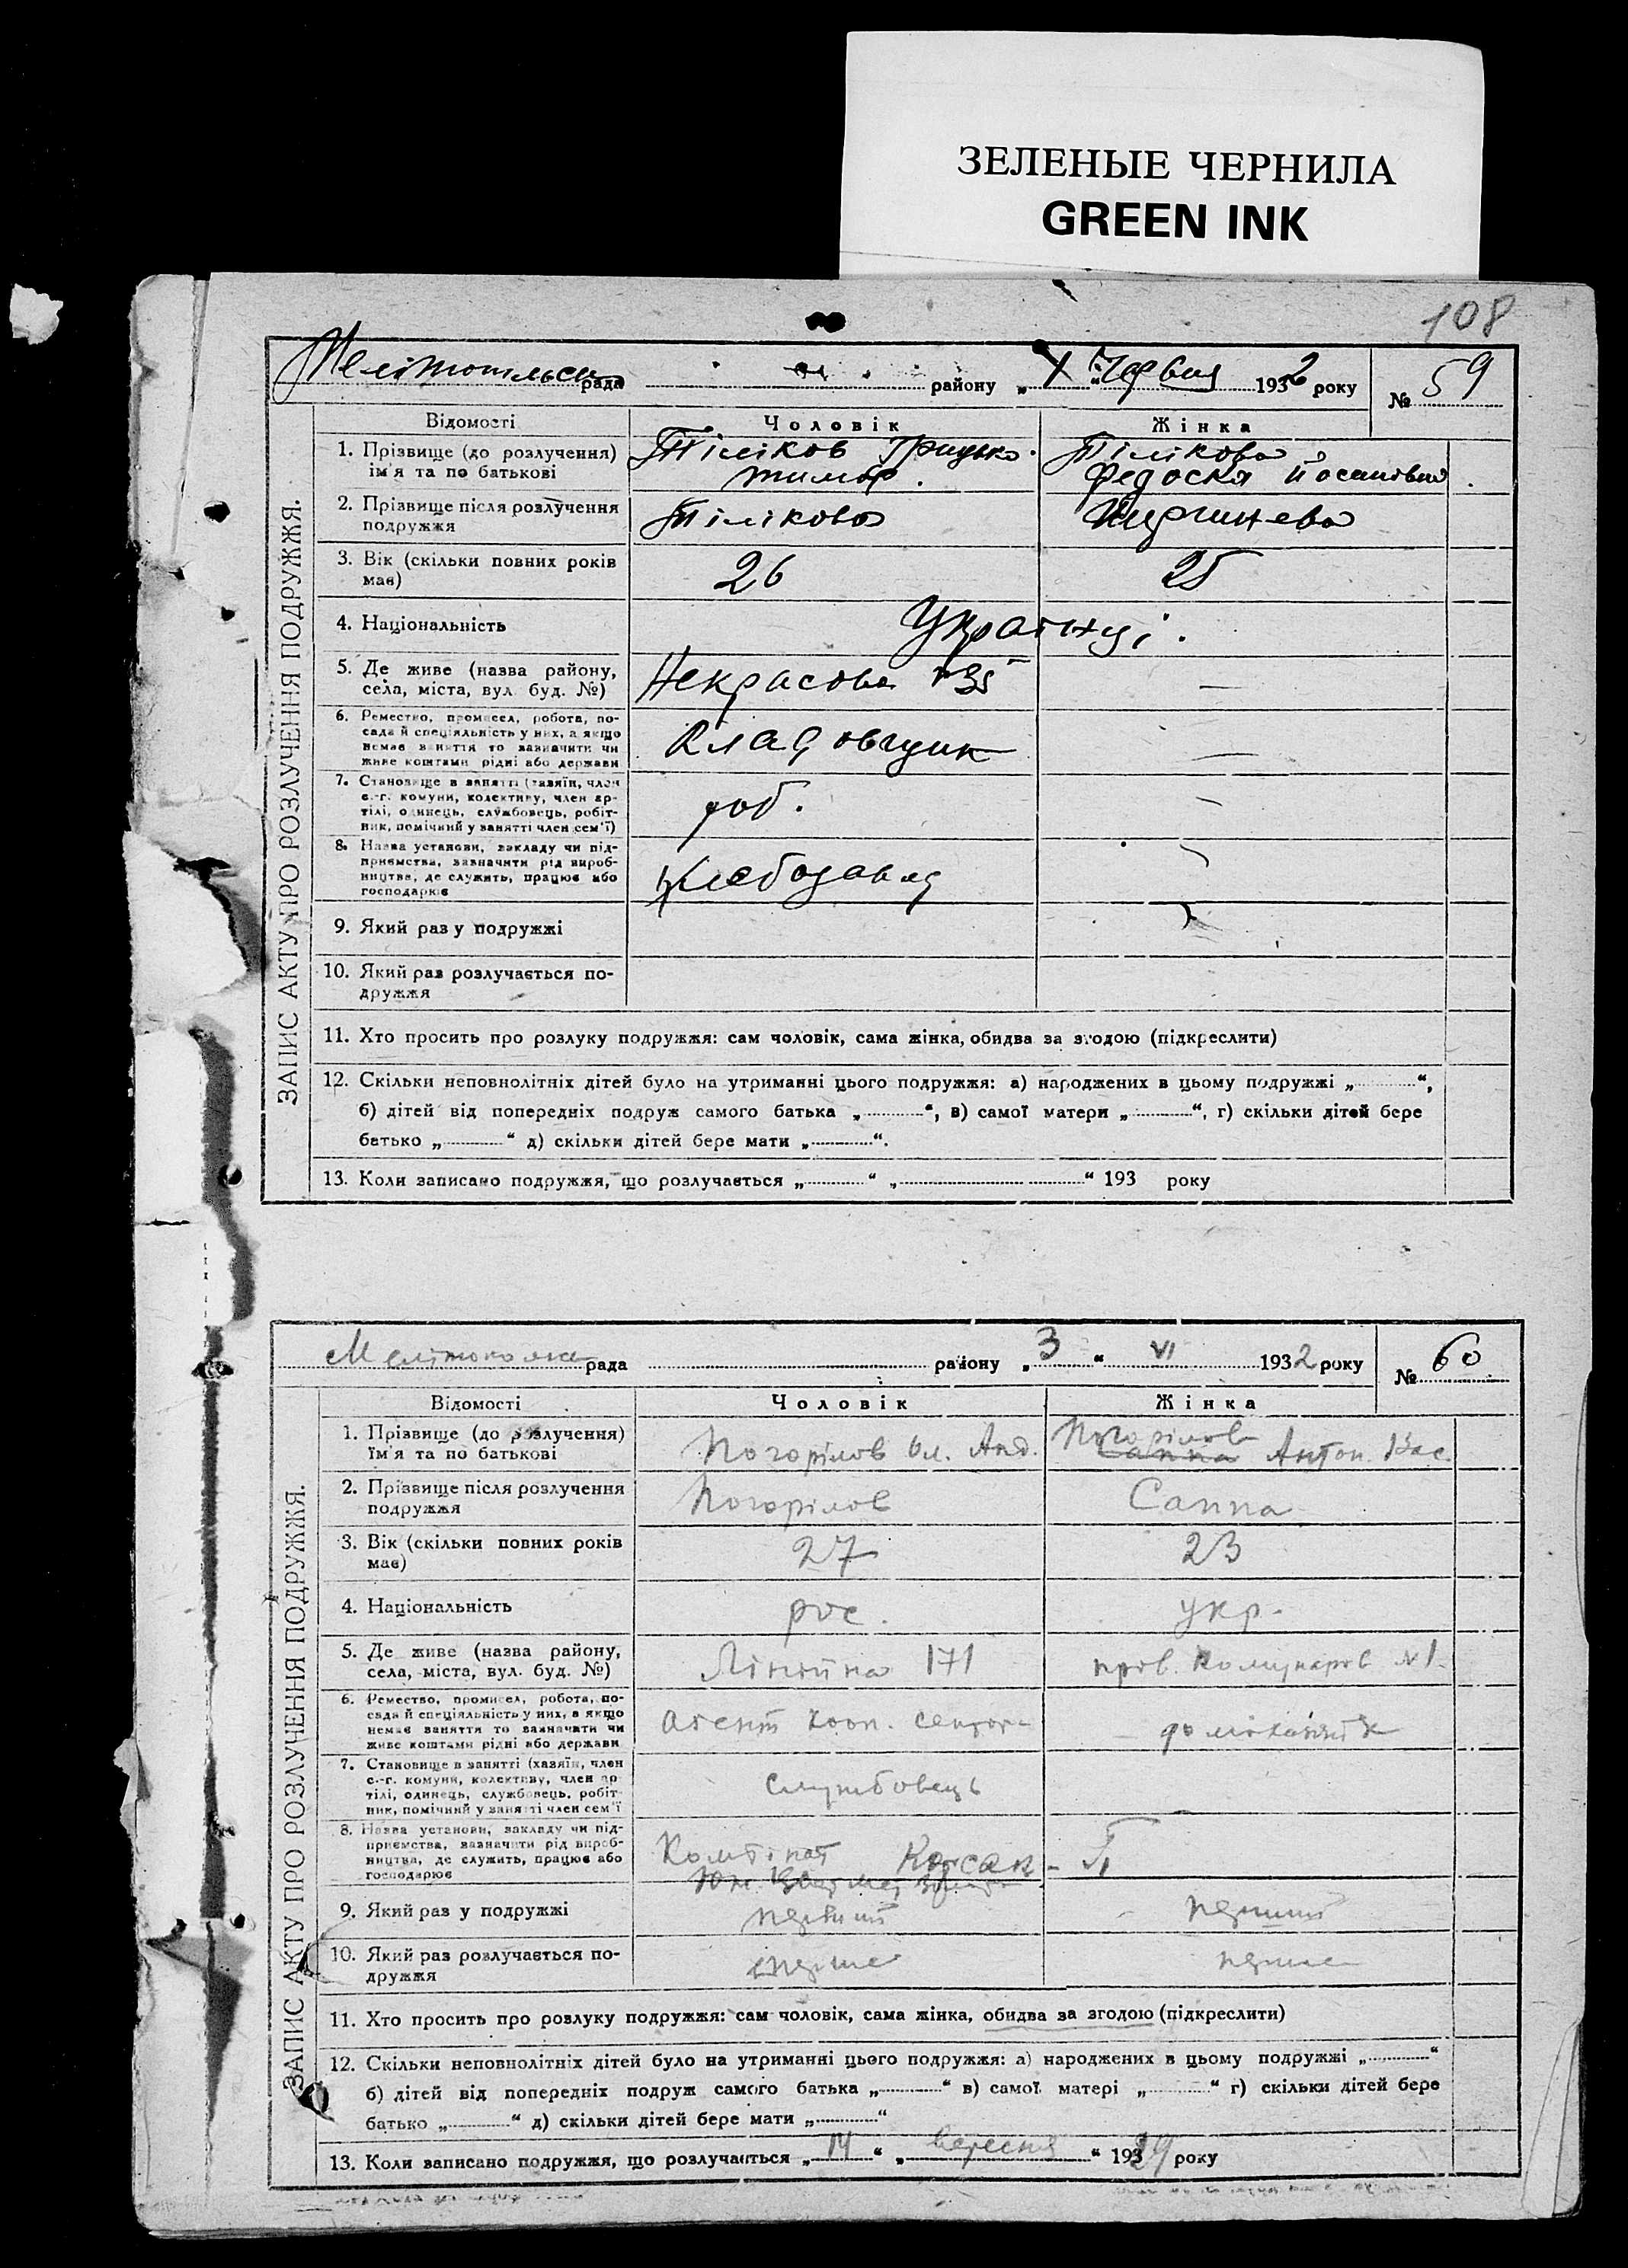 ЗЕЛЕНЫЕ ЧЕРНИЛА
GREEN INK
108
ЗАПИС АКТУ ПРО РОЗЛУЧЕННЯ ПОДРУЖЖЯ.
рада району „ “ Червня 1932 року № 59
Відомості Чоловік Жінка
1. Прізвище (до розлучення) ім'я та по батькові
Тіліков Грицько Тімоф. Тілікова Федоскя
2. Прізвище після розлучення подружжя
Тілікова
3. Вік (скільки повних років має)
26 25
4. Національність
Українці.
5. Де живе (назва району, села, міста, вул. буд. №)
Некрасова —
6. Ремество, промисел, робота, посада й спеціяльність у них, а якщо немає заняття то зазначити чи живе коштами рідні або держави
Кладовщик —
7. Становище в занятті (хазяїн, член с.-г. комуни, колективу, член артілі, одинець, службовець, робітник, помічний у занятті член сем'ї)
роб. —
8. Назва установи, закладу чи підприємства, зазначити рід виробництва, де служить, працює або господарює
9. Який раз у подружжі
10. Який раз розлучається подружжя
11. Хто просить про розлуку подружжя: сам чоловік, сама жінка, обидва за згодою (підкреслити)
12. Скільки неповнолітніх дітей було на утриманні цього подружжя: а) народжених в цьому подружжі „ “,
б) дітей від попередніх подруж самого батька „ “, в) самої матери „ “, г) скільки дітей бере
батько „ “ д) скільки дітей бере мати „ “.
13. Коли записано подружжя, що розлучається „ “ „ “ 193 року
ЗАПИС АКТУ ПРО РОЗЛУЧЕННЯ ПОДРУЖЖЯ.
рада району „ 3 “ VI 1932 року № 60
Відомості Чоловік Жінка
1. Прізвище (до розлучення) їм'я та по батькові
Погорілов Ол. Анд. Погорілова Антон. Вас.
2. Прізвище після розлучення подружжя
Погорілов Саппа
3. Вік (скільки повних років має)
27 23
4. Національність
рос. укр.
5. Де живе (назва району, села, міста, вул. буд. №)
Лінійна 171 пров. Комунарів №1
6. Ремество, промисел, робота, посада й спеціяльність у них, а якщо немає заняття то зазначати чи живе коштами рідні або держави
Агент кооп.
7. Становище в занятті (хазяїн, член с.-г. комуни, колективу, член артілі, одинець, службовець, робітник, помічний у занятті член сем'ї
службовець
8. Назва установи, закладу чи підприємства, зазначити рід виробництва, де служить, працює або господарює
Комбінат
9. Який раз у подружжі
перший перший
10. Який раз розлучається подружжя
перше перше
11. Хто просить про розлуку подружжя: сам чоловік, сама жінка, обидва за згодою (підкреслити)
12. Скільки неповнолітніх дітей було на утриманні цього подружжя: а) народжених в цьому подружжі „ “
б) дітей від попередніх подруж самого батька „ “ в) самої матері „ “ г) скільки дітей бере
батько „ “ д) скільки дітей бере мати „ “
13. Коли записано подружжя, що розлучається „ 14 “ „ вересня “ 1929 року